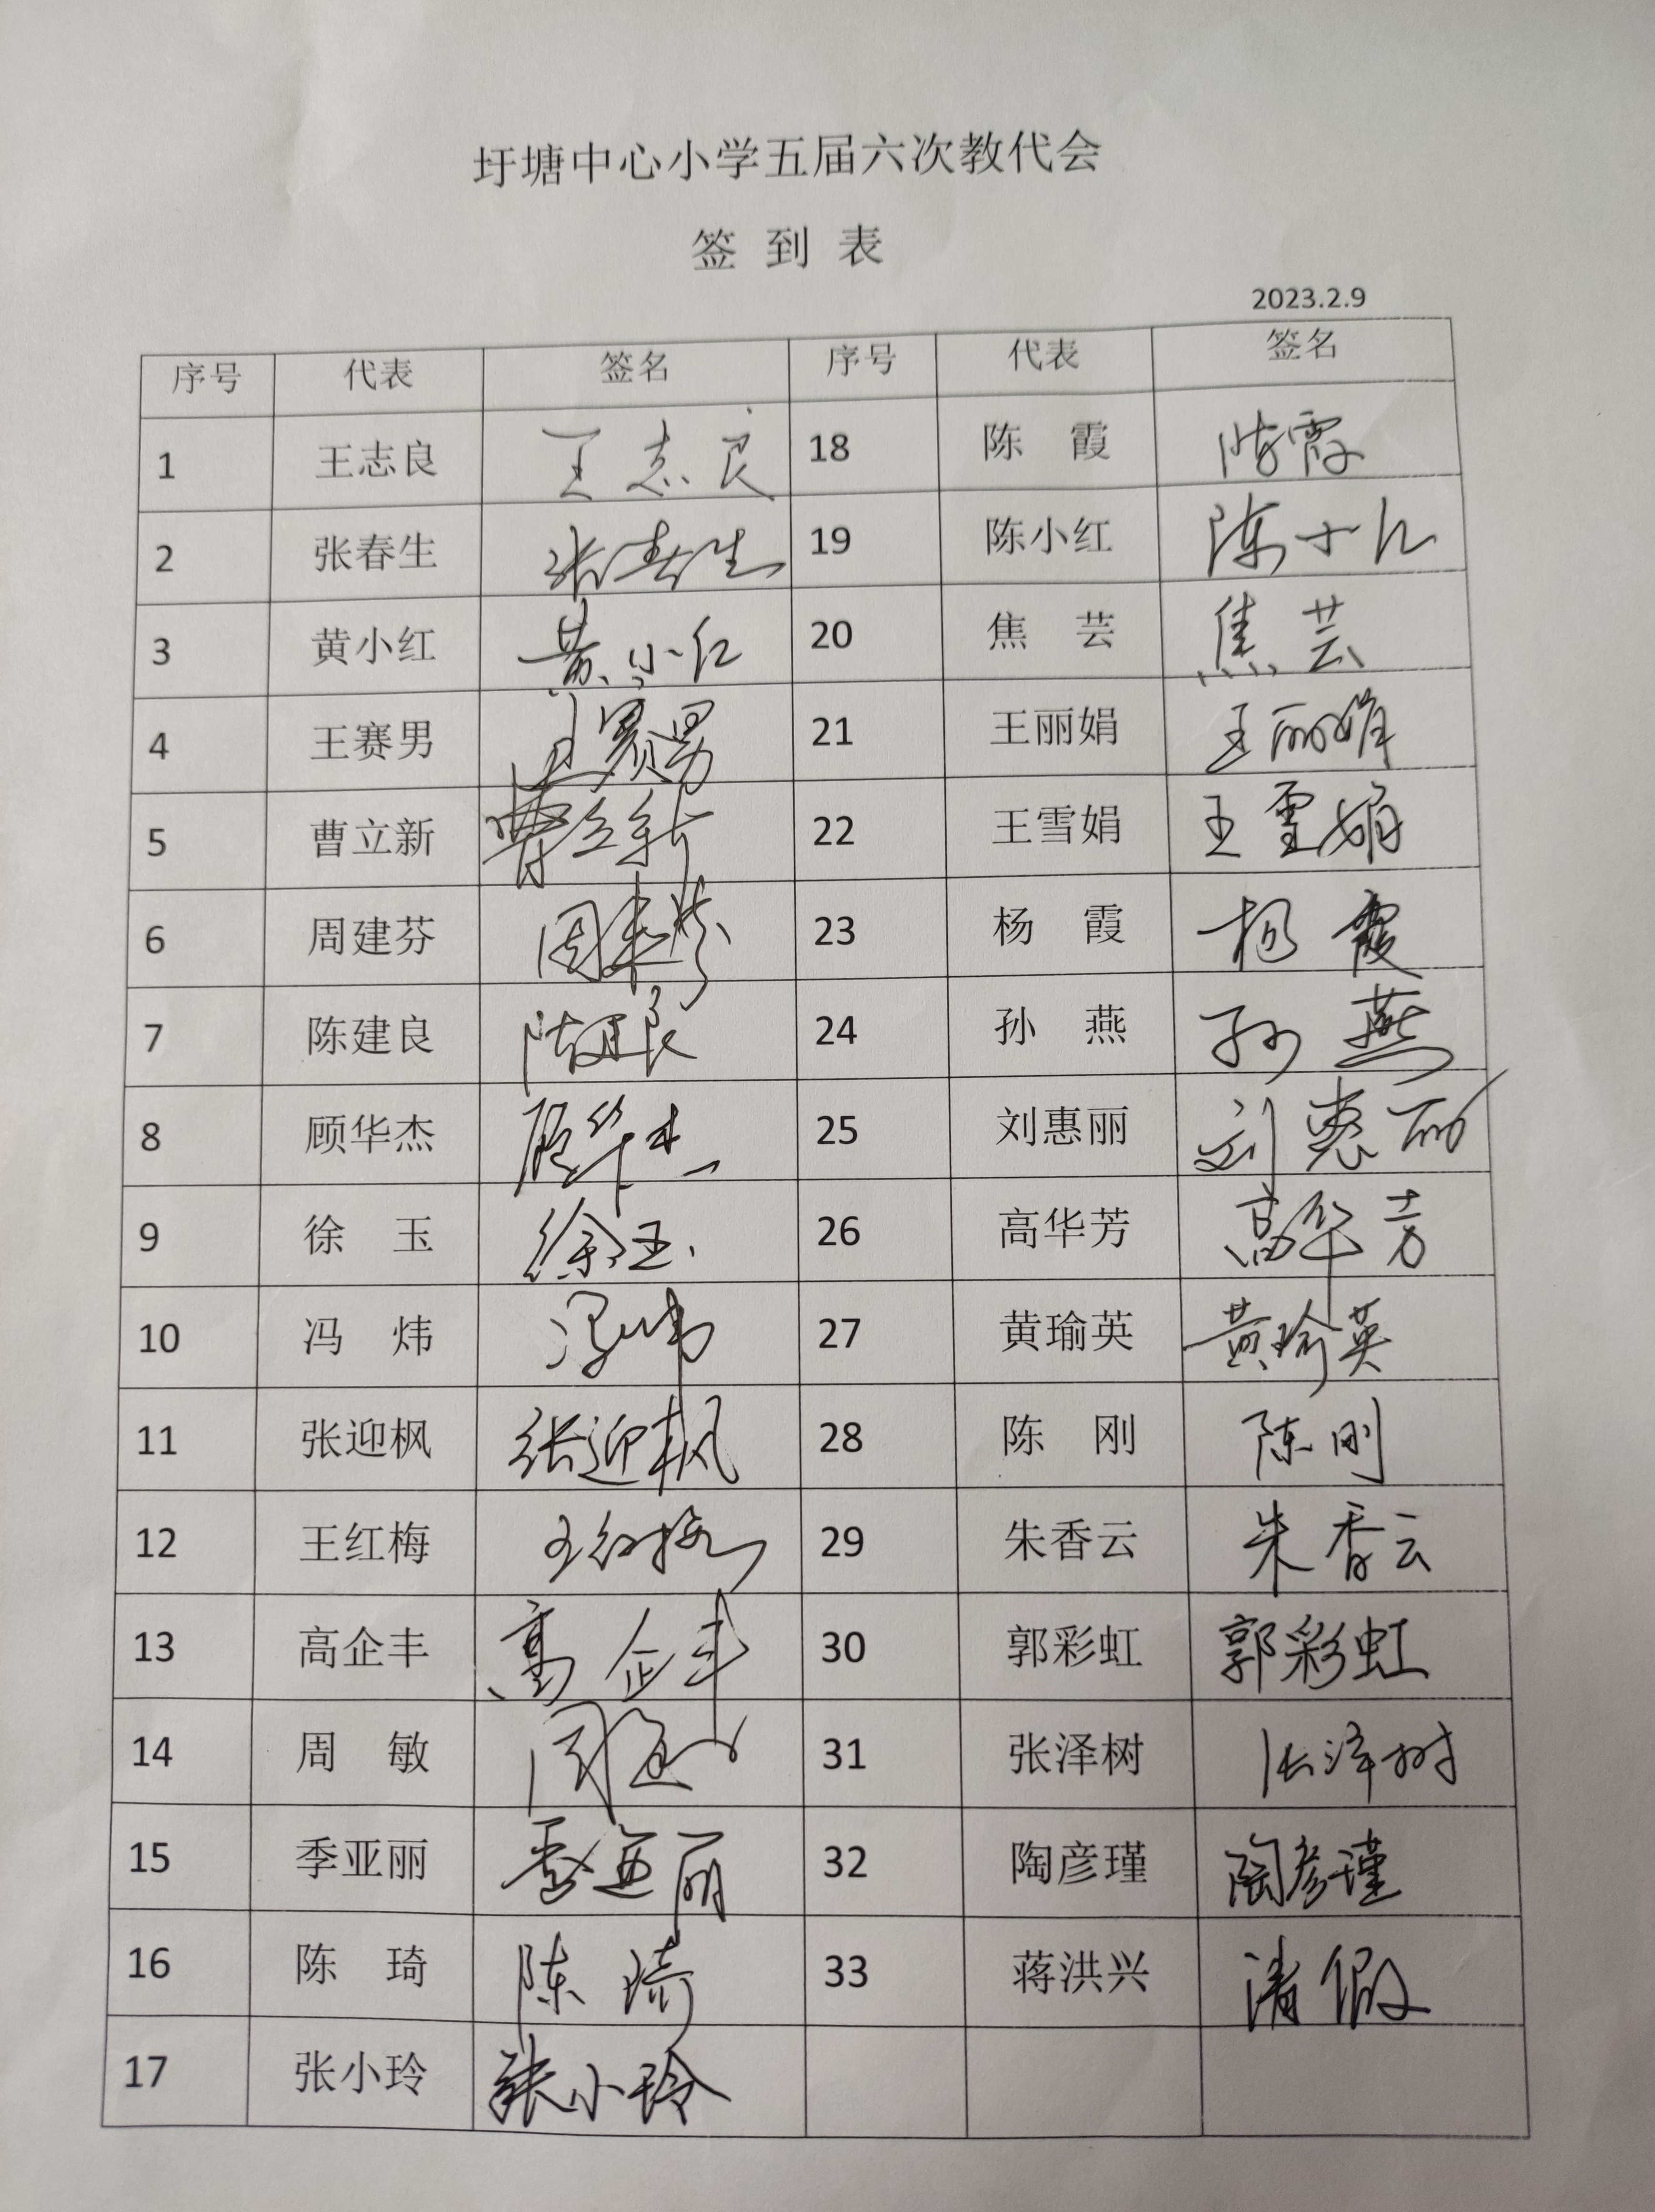 圩塘中心小学五届六次教代会
签 到 表
2023.2.9
序号 代表 签名 序号 代表 签名
1 王志良 王志良 18 陈 霞 陈霞
2 张春生 张春生 19 陈小红 陈小红
3 黄小红 黄小红 20 焦 芸 焦芸
4 王赛男 王赛男 21 王丽娟 王丽娟
5 曹立新 曹立新 22 王雪娟 王雪娟
6 周建芬 周建芬 23 杨 霞 杨霞
7 陈建良 陈建良 24 孙 燕 孙燕
8 顾华杰 顾华杰 25 刘惠丽 刘惠丽
9 徐 玉 徐玉 26 高华芳 高华芳
10 冯 炜 冯炜 27 黄瑜英 黄瑜英
11 张迎枫 张迎枫 28 陈 刚 陈刚
12 王红梅 王红梅 29 朱香云 朱香云
13 高企丰 高企丰 30 郭彩虹 郭彩虹
14 周 敏 周敏 31 张泽树 张泽树
15 季亚丽 季亚丽 32 陶彦瑾 陶彦瑾
16 陈 琦 陈琦 33 蒋洪兴 请假
17 张小玲 张小玲